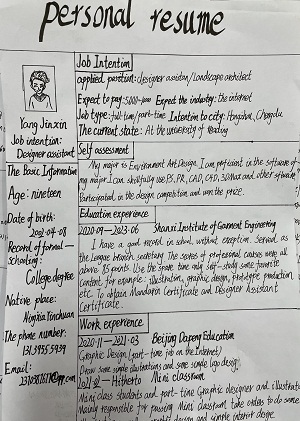 personal resume
Job Intention
applied position: designer assistant/Landscape architect
Expect to pay: Expect the industry: the internet
Job type: full-time/part-time Intention to city: Hangzhou, Chengdu
The current state: At the university of reading
Yang Jinxin
Job intention:
Designer assistant
The Basic Information
Age: nineteen
Date of birth:
Record of formal
schooling:
College degree
Native place:
Ningxia Yinchuan
The phone number:
Email:
Self assessment
My major is Environment Art Design. I am proficient in the software of
my major. I can skillfully use PS, PR, CAD, and other software
Participated in the design competition and won the prize.
Education experience
2020-09—2023-06 Shaanxi Institute of Garment Engineering
I have a good record in school, without exception. Served as
the League branch secretary. The scores of professional courses were all
above 85 points. Use the spare time only self-study some favorite
content, for example: illustration, graphic design, prototype production,
etc. To obtain Mandarin Certificate and Designer Assistant
Certificate.
Work experience
2020-11—2021-03 Beijing Dapeng Education
Graphic Design (part-time job on the Internet)
Draw some simple illustrations and some simple logo design
Hitherto Mini classroom
Mini class students and part-time Graphic designer and illustrator
Mainly responsible for pausing Mini classroom take orders to do some
design and simple interior